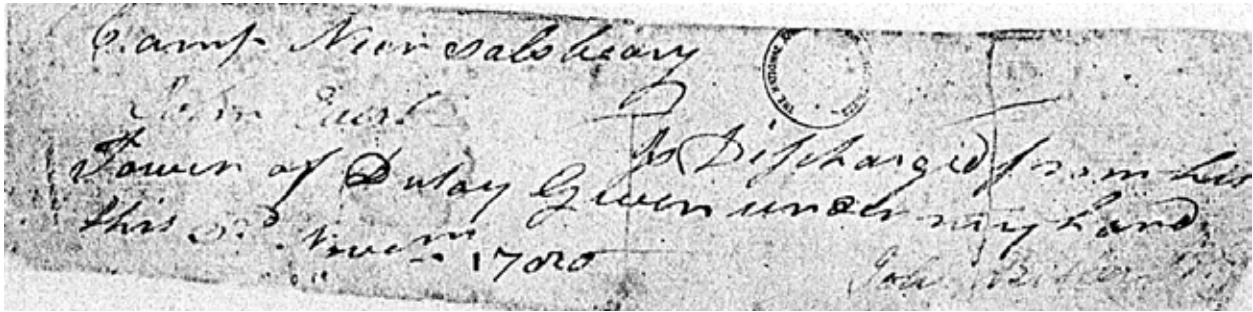 Camp Neer Salsbeary
John
Is Discharged from his
Tower of Dutay Given under my hand
this Novem 1780
John